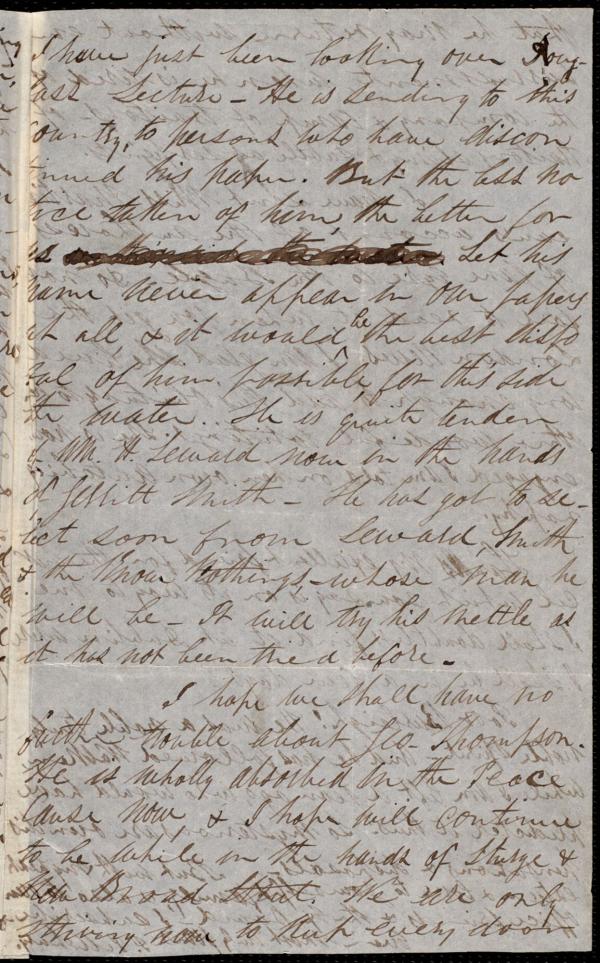 I have just been looking over Doug-
lass Lecture - He is sending to this
country, to persons who have discon
tinued his paper. But the less no
tice taken of him, the better for
us Let his
name never appear in our papers
at all, & it would be the best dispo
sal of him possible, for this side
the water.. He is quite tender
of Wm. H. Seward now in the hands
of Gerritt Smith - He has got to se-
lect soon from Seward, Smith
& the Know Nothings - whose man he
will be - It will try his mettle as
it has not been tried before.
I hope we shall have no
further trouble about Geo. Thompson.
He is wholly absorbed in the Peace
Cause now, & I hope will continue
to be while in the hands of Sturge &
New Broad Street. We are only
striving now to keep every door